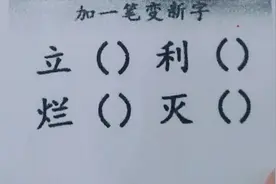 加一笔变新字
立（）利（）
烂（）灭（）